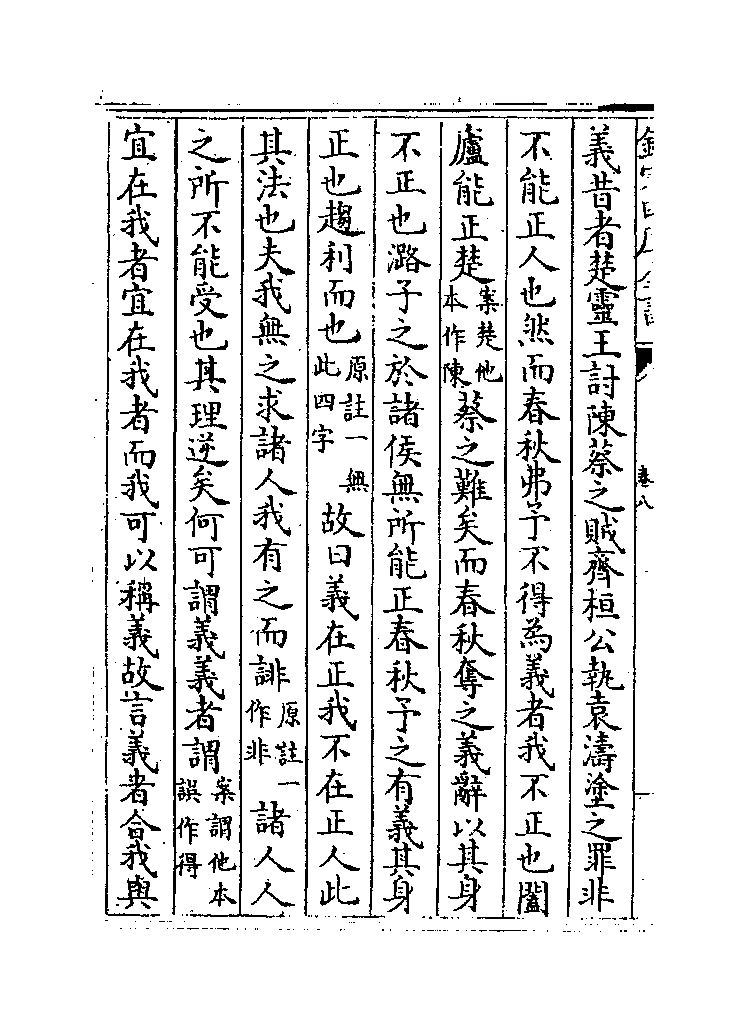 義昔者楚靈王討陳蔡之賊齊桓公執袁濤塗之罪非
不能正人也然而春秋弗予不得為義者我不正也闔
廬能正楚案楚他本作陳蔡之難矣而春秋奪之義辭以其身
不正也潞子之於諸侯無所能正春秋予之有義其身
正也趨利而也原註一無此四字故曰義在正我不在正人此
其法也夫我無之求諸人我有之而誹原註一作非諸人人
之所不能受也其理逆矣何可謂義義者謂案謂他本誤作得
宜在我者宜在我者而我可以稱義故言義者合我與